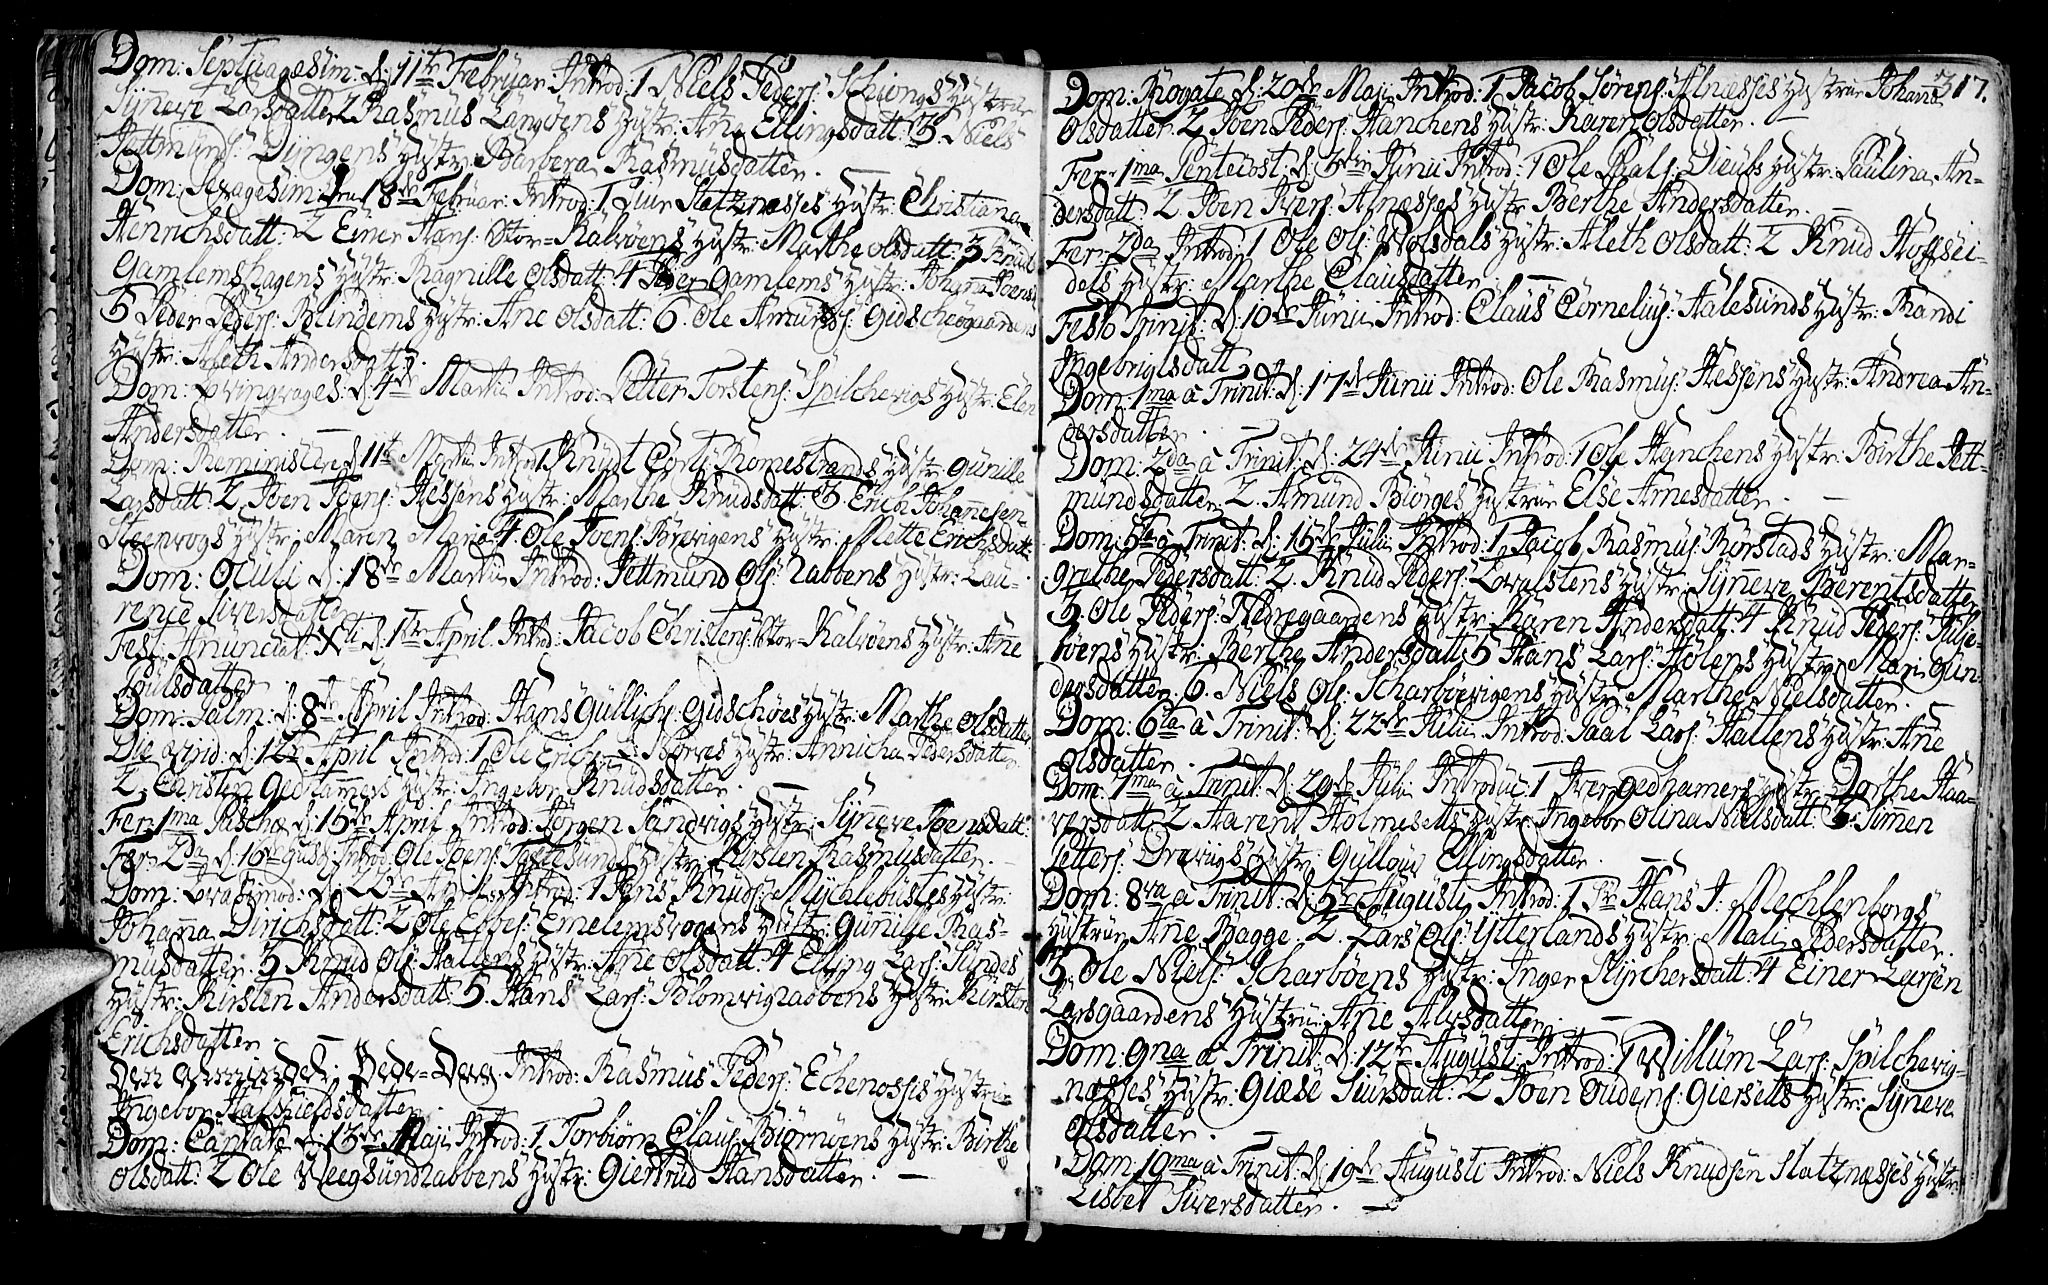 Dom: Septuagesim: d: 11te Februar: Introd: 1 Niels Peders: Schiongs Hystrue
Synneve Larsdatter 2 Rasmus Langvens Hystr: Ane Ellingsdatt: 3 Niels
Jettmunds: Dyngens Hystr: Barbera Rasmusdatter. —
Dom: Sexagesim: den 18de Februar: Introd: 1 Siur Slatznesses Hystr: Christiana
Henrichsdatt: 2 Einer Hans: Stor-Kalvøens Hystr: Marthe Olsdatt: 3 Knud
Gamlemshagens Hystr: Ragnille Olsdatt: 4 Peder Gamlems Hystr: Johanna Joensd:
5 Peder Peders: Blindems Hystr: Ane Olsdatt: 6. Ole Amunds: Gidscheogaardens
Hystr: Aleth Andersdatter.
Dom: Qvinqvages: d: 4de Martii Introd: Petter Torstens: Spilchevigs Hystr: Elen
Andersdatter. —
Dom: Reminiscere d: 11te Martii Introd: 1 Knudt Corts: Romestrands Hystr: Gunille
Larsdatt: 2 Joen Joens: Hessens Hystr: Marthe Knudsdatt: 3. Erich Johannesen
Steenvogs Hystr: Maren Maria 4 Ole Joens: Brevigens Hystr: Mette Erichsdatt:
Dom: Oculi d: 18de Martii Introd: Jettmund Ols: rabbens Hystr: Lau-
rence Siversdatter
Fest: Anunciat: d: 1te April Introd: Jacob Christens: Stor-Kalvøens Hystr: Ane
Poulsdatter —
Dom: Palm: d: 8de April Introd: Hans Gullichs: Gidschøes Hystr: Marthe Olsdatter
Die Virid: d: 12te April Introd: 1 Ole Erichs: Norves Hystr: Annicha Pedersdatter
2. Christen Gedhamers Hystr: Ingebor Knudsdatter. —
Fer: 1ma Paschæ d: 15de April Introd: Jørgen Sandvigs Hystr: Synneve Joensdatt:
Fer: 2da d: 16 Introd: Ole Joens: Hystr: Kirsten Rasmusdatter. —
Dom: Qvasimod: d: 22de April Introd: 1 Jens Knuds: Mychlebustes Hystr:
Johanna Dirichsdatt: 2 Ole Ebbes: Emelemsvogens Hystr: Gunnilje Ras-
musdatter 3 Knud Ols: Hattens Hystr: Ane Olsdatt: 4 Elling Lars: Sundes
Hystr: Kirsten Andersdatt: 5. Hans Lars: Blomvigrabbens Hystr: Kirsten
Erichsdatter. —
Den Almindel: Bede-Dag Introd: Rasmus Peders: Echenosses Hystrue
Ingebor Halfieldsdatter. —
Dom: Cantate d: 13de Maji Introd: 1. Torbiørn Claus: Biørnøens Hystr: Birthe
Olsdatt: 2 Ole Veegsundrabbens Hystr: Giertrud Hansdatter. —
317.
Dom: Rogate d: 20de Maji Introd: 1. Jacob Sørens: Alnesses Hystrue Johanna
Olsdatter. 2 Joen Peders: Hanchens Hystr: Karen Olsdatter. —
Fer: 1ma Pentecost: d: 3die Junii Introd: 1 Ole Pals: Dieubs Hystr: Paulina An-
dersdatt: 2 Joen Ivers: Alnesses Hystr: Berthe Andersdatter. —
Fer: 2da Introd: 1 Ole Ols: Wolsdals Hystr: Aleth Olsdatt: 2 Knud Hoffsei-
dets Hystr: Marthe Clausdatter.
Festo Trinit: d: 10de Junii Introd: Claus Cornelius: Aalesunds Hystr: Randi
Ingebrigtsdatt
Dom: 1ma à Trinit: d: 17de Junii Introd: Ole Rasmus: Hessens Hystr: Andrea An-
dersdatter. —
Dom: 2da à Trinit: d: 24de Junii Introd: 1 Ole Hanchens Hystr: Birthe Jett-
mundsdatter 2. Amund Biørges Hystrue Else Arnesdatter. —
Dom: 5ta à Trinit: d: 15de Julii Introd: 1 Jacob Rasmus: Rørstads Hystr: Mar-
grethe Pedersdatt: 2. Knud Peders: Qvalstens Hystr: Synneve Berentsdatter
3. Ole Peders: Nedregaardens Hystr: Karen Andersdatt: 4 Knud Peders: Kulje-
bøens Hystr: Berthe Andersdatt: 5 Hans Lars: Holens Hystr: Mari Gun-
dersdatter. 6. Niels Ols: Scharbøevigens Hystr: Marthe Nielsdatter.
Dom: 6ta à Trinit: d: 22de Julii Introd: Paal Lars: Hattens Hystr: Ane
Olsdatter. —
Dom: 1ma à Trinit: d: 29de Julii Introduc: 1 Iver Gedhamers Hystr: Dorthe Haa-
versdatt: 2 Harent Holmesetts Hystr: Ingebor Olina Nielsdatt: 3. Simen
Petters: Drevigs Hystr: Gulloug Ellingsdatter. —
Dom: 8va à Trinit: d: 5te Augusti Introd: 1 Sr: Hans J: Mechlenborgs
Hystrue Ane Bagge. 2. Lars Ols: Ytterlands Hystr: Mali Pedersdatter.
3. Ole Niels: Scharbøens Hystr: Inger Styrchersdatt: 4 Einer Larsen
Larsgaardens Hystrue: Ane Alvsdatter. —
Dom: 9na à Trinit: d: 12te August: Introd: 1 Willum Lars: Spilchevig-
nesses Hystr: Giøse Siursdatt: 2 Joen Oudens: Giersetts Hystr: Synneve
Olsdatter. —
Dom: 10ma à Trinit: d: 19de Augusti Introd: Niels Knudsen Slatznesses Hystr:
Lisbet Siversdatter. —